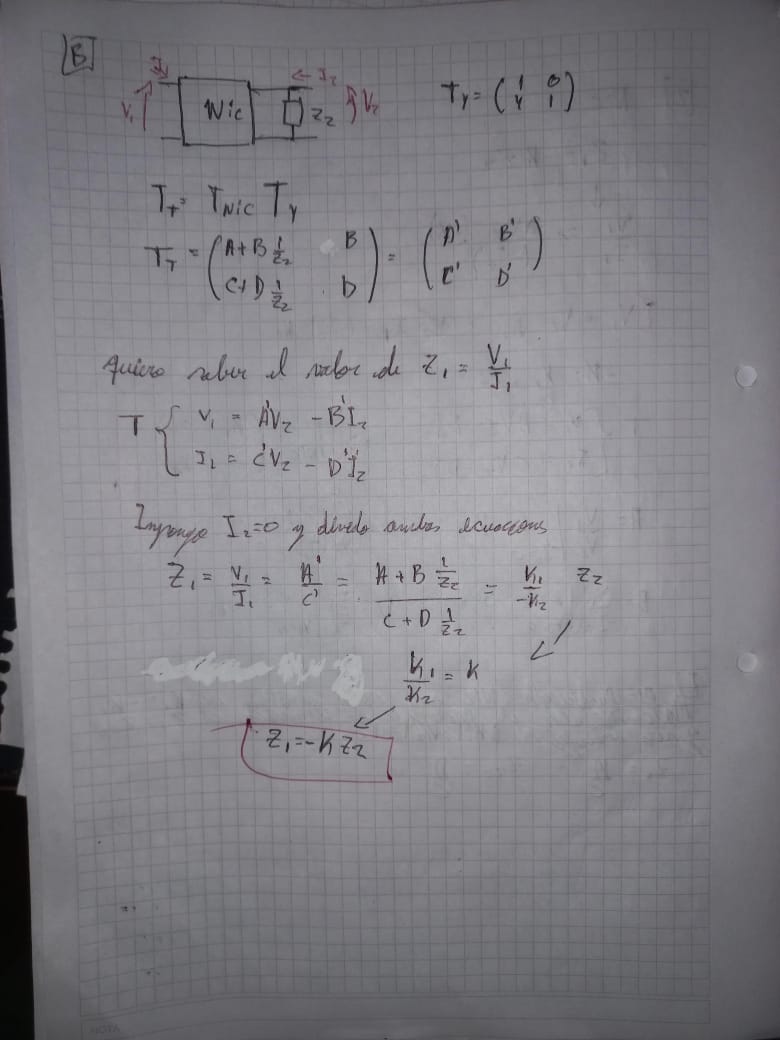 B
I1 ← I2
V1 Nic Z2 V2 Ty = (1 0
Y 1)
TT = TNic Ty
TT = (A+B 1/Z2 B
C+D 1/Z2 D) = (A' B'
C' D')
Quiero saber el valor de Z1 = V1/I1
T { V1 = A'V2 - B'I2
I1 = C'V2 - D'I2
Impongo I2=0 y divido ambas ecuaciones
Z1 = V1/I1 = A'/C' = (A + B 1/Z2)/(C + D 1/Z2) = K1/-K2 Z2
K1/K2 = K
Z1 = -K Z2
NOTA